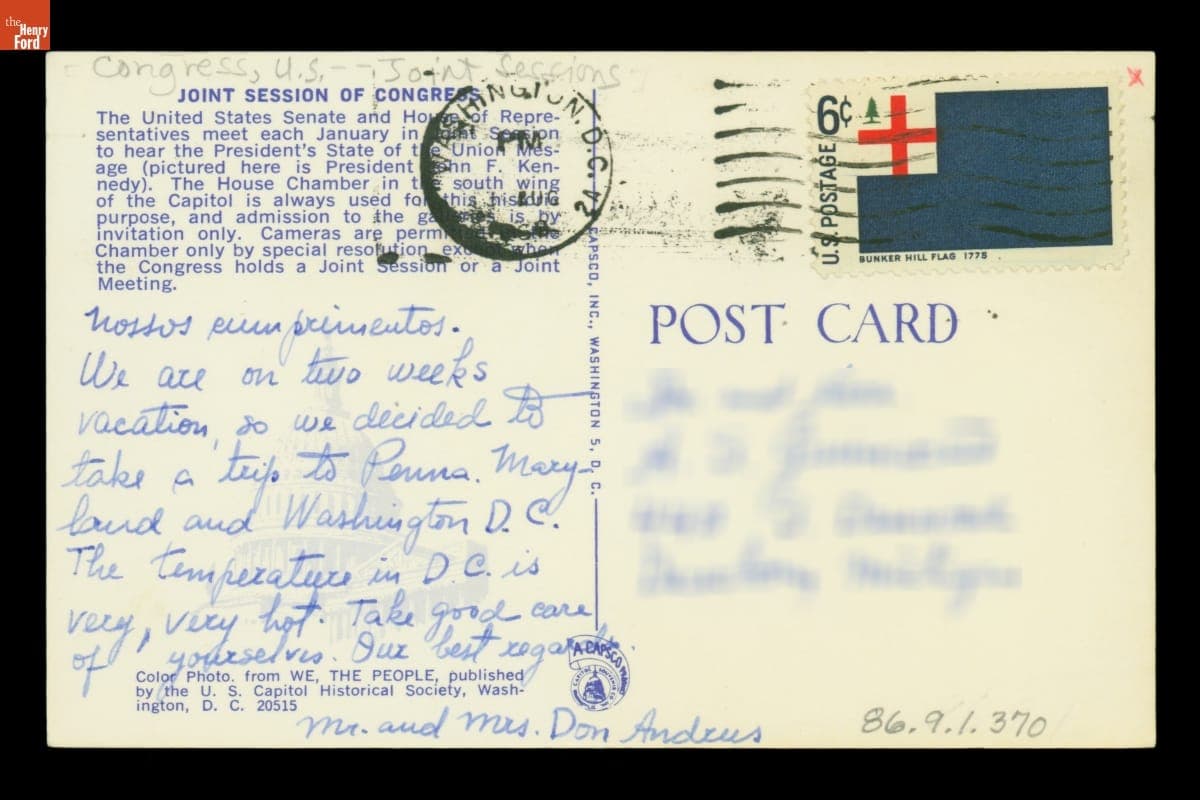 the
Henry
Ford
Congress, U.S. -- Joint Sessions
JOINT SESSION OF CONGRESS
The United States Senate and House of Repre-
sentatives meet each January in Joint Session
to hear the President's State of the Union Mes-
age (pictured here is President John F. Ken-
nedy). The House Chamber in the south wing
of the Capitol is always used for this historic
purpose, and admission to the galleries is by
invitation only. Cameras are permitted in the
Chamber only by special resolution, except when
the Congress holds a Joint Session or a Joint
Meeting.
WASHINGTON, D.C.
PM
AUG
24
1968
6¢
U.S. POSTAGE
BUNKER HILL FLAG 1775
POST CARD
Nossos cumprimentos.
We are on two weeks
vacation, so we decided to
take a trip to Penna. Mary-
land and Washington D.C.
The temperature in D.C. is
very, very hot. Take good care
of yourselves. Our best regards.
Mr. and Mrs. Don Andrus
Color Photo. from WE, THE PEOPLE, published
by the U. S. Capitol Historical Society, Wash-
ington, D. C. 20515
CAPSCO, INC., WASHINGTON 5, D. C.
A CAPSCO
86.9.1.370